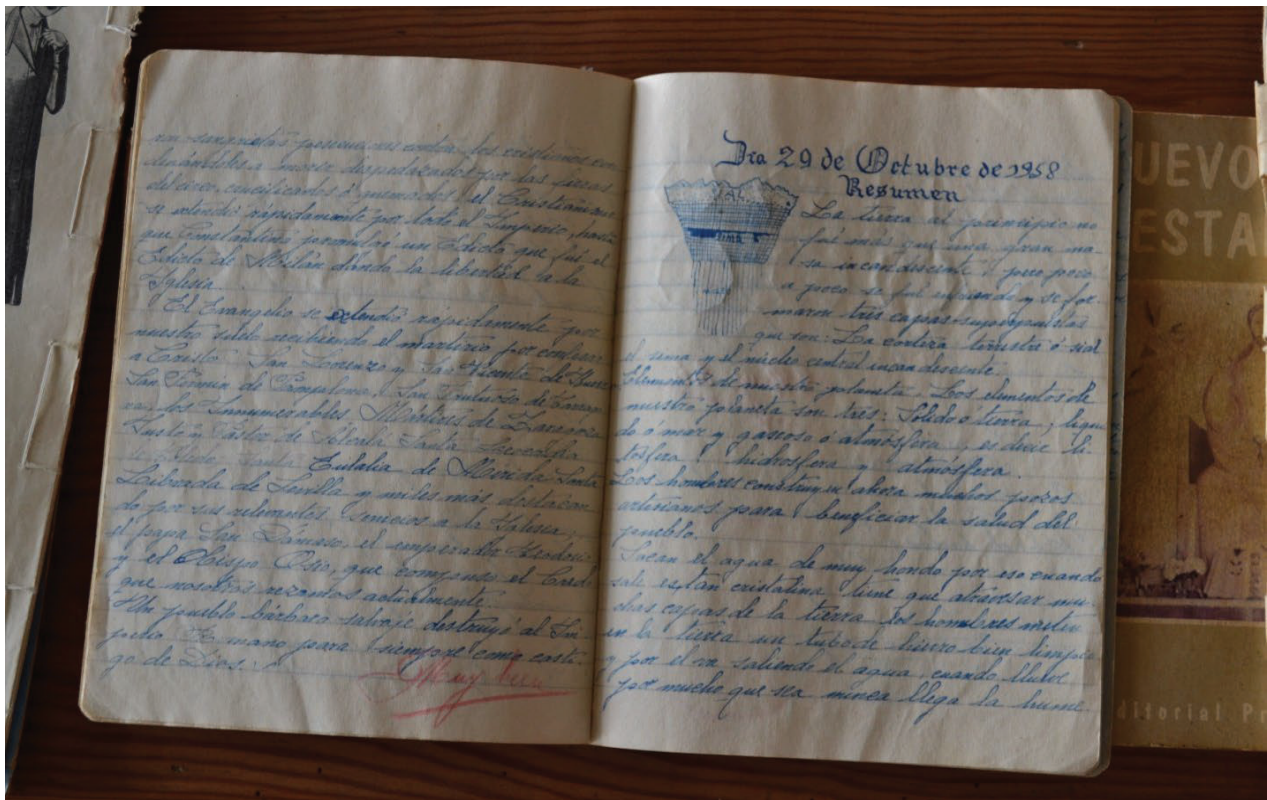 sangrientas persecuciones contra los cristianos con
denándoles a morir despedazados por las fieras
del circo, crucificados ó quemados, el Cristianismo
se extendió rápidamente por todo el Imperio, hasta
que Constantino promulgó un Edicto que fué el
Edicto de Milán dando la libertad a la
Iglesia
El Evangelio se extendió rapidamente por
nuestro suelo recibiendo el martirio por confesar
a Cristo. San Lorenzo y San Vicente de Huesca
San Fermin de Pamplona, San Fructuoso de Tarra
los Innumerables Mártires de Zaragoza
Justo y Pastor de Alcalá Santa Leocadia
de Toledo Santa Eulalia de Merida Santa
Librada de Sevilla y miles más destacan
do por sus relevantes servicios a la Iglesia,
el papa San Dámaso, el emperador Teodosio
y el Obispo Osio, que compuso el Credo
que nosotros rezamos actualmente.
Un pueblo bárbaro salvaje destruyó al Im
perio Romano para siempre como casti
go de Dios.
Muy bien
Dia 29 de Octubre de 1958
Resumen
SIAL
Sima
La tierra al principio no
fué mas que una gran ma
sa incandescente, pero poco
a poco se fué enfriando y se for
maron tres capas superpuestas
que son: La corteza terrestre ó sial
el sima y el núcleo central incandescente.
Elementos de nuestro planeta. Los elementos de
nuestro planeta son tres: Sólido o tierra, liqui
do ó mar y gaseoso ó atmósfera, es decir li
tosfera, hidrosfera y atmósfera.
Los hombres construyen ahora muchos pozos
artesianos para beneficiar la salud del
pueblo.
Sacan el agua de muy hondo por eso cuando
sale es tan cristalina tiene que atravesar mu
chas capas de la tierra. Los hombres meten
en la tierra un tubo de hierro bien limpio
y por el va saliendo el agua, cuando llueve
por mucho que sea nunca llega la hume
UEVO
ESTA
ditorial Pr